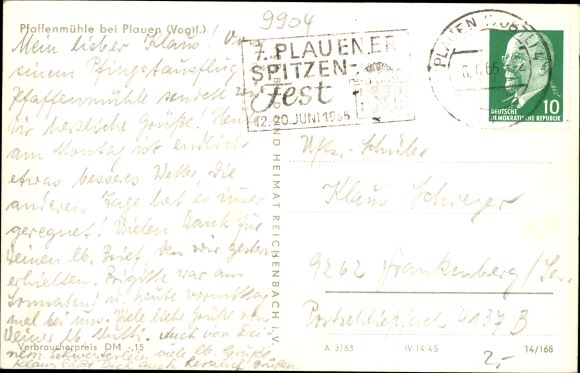 9904
Pfaffenmühle bei Plauen (Vogtl.)
Mein lieber Klaus! Von
einem Pfingstausflug
Pfaffenmühle sendet
Dir herzliche Grüße. Heute
am Montag ist endlich
etwas besseres Wetter, die
anderen Tage hat es immer
geregnet! Vielen Dank für
Deinen lb. Brief, den wir gestern
erhielten. Brigitte war am
Sonnabend u. heute vormittag
mal bei uns. Viele liebe Grüße von
Deiner lb. Mutti. Auch von Dei-
nem Schwesterlein viele lb. Grüße
Klaus läßt Dich auch herzlich grüßen
Verbraucherpreis DM -,15
7. PLAUENER
SPITZEN-
fest
12.-20. JUNI 1965
PLAUEN (VOGTL) 4
10
DEUTSCHE
DEMOKRATISCHE REPUBLIK
UND HEIMAT REICHENBACH I. V.
Uffz.-Schüler
Klaus
9262 Frankenberg/Sa.
Postschließfach 4137 B
A 3163 IV-14-45 14/168
2,-